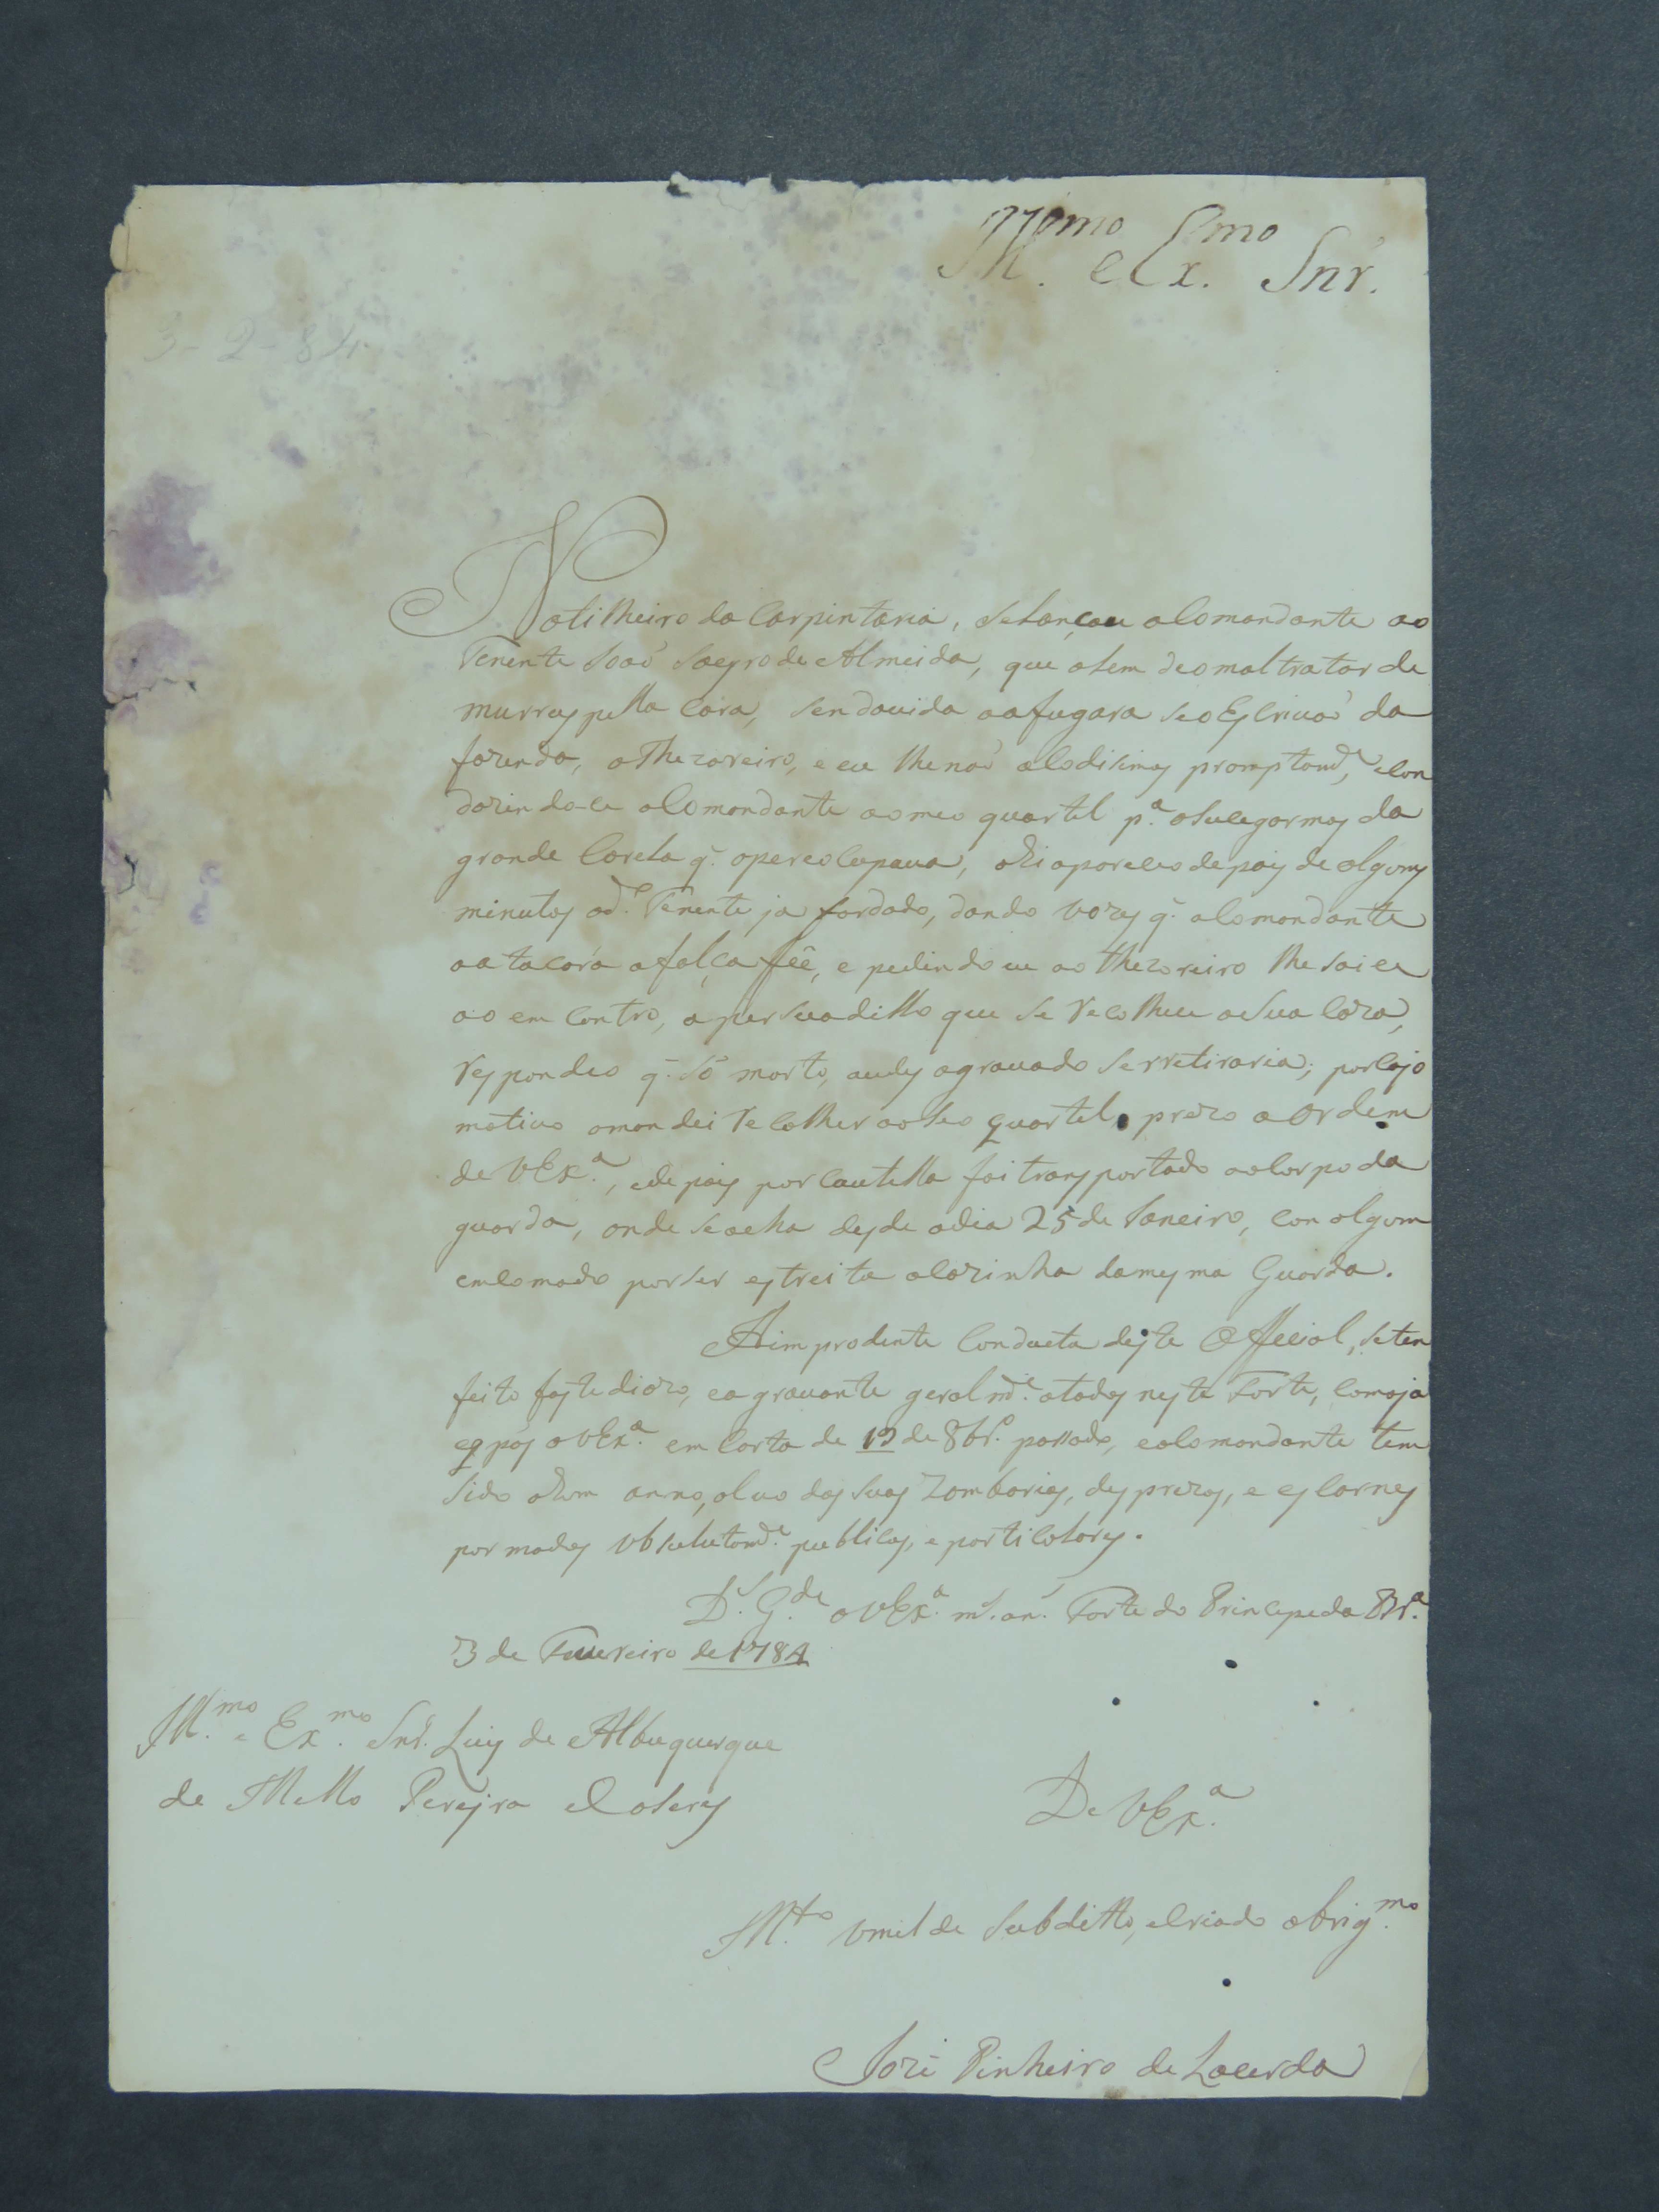 Ill.mo e Ex.mo Snr.
3-2-84
No tilheiro da Carpintaria, se lançou o Comandante ao
Tenente Joaõ Soeyro de Almeida, que alem de o maltratar de
murros pella cara, sen douida o afugara se o Escrivaõ da
fazenda, o Thezoreiro, e eu lhe naõ acodisimos promptam.e, e con
dozindo-ce o Comandante ao meo quartel p.a o sucegarmos da
grande Colera q̃. o pereocupaua, ahi apareceo depois de alguns
minutos o d.o Tenente ja fardado, dando vozes q̃. o Comandante
o atacára a falça fée, e pedindo eu ao Thezoreiro lhe saice
ao emcontro, a persuadillo que se recolhece a sua Caza,
respondeo q̃. só morto, ou dezagrauado se rretiraria; por cujo
motiuo o mandei recolher ao seo quartel, prezo a Ordem
de VEx.a, e depois por Cautella foi transportado ao Corpo da
guarda, onde se acha desde o dia 25 de Janeiro, con algum
emcomodo por ser estreita a Cazinha da mesma Guarda.
A improdente Conducta deste Official, se ten
feito fastediozo, e agrauante geralm.e a todos neste Forte, como ja
espós a VEx.a em Carta de 19 de 8br.o passado, e o Comandante tem
sido a hum anno, aluo das suas Zombarias, desprezos, e escarneos
por modos absolutam.e publicos, e particolares.
D.s G.de a VEx.a m.s an.s Forte do Principe da Br.a
3 de Feuereiro de 1784
Ill.mo e Ex.mo Snr. Luis de Albuquerque
de Mello Pereira e Caseres
De VEx.a
M.to vmilde Subditto, e Criado obrig.mo
Jozé Pinheiro de Lacerda